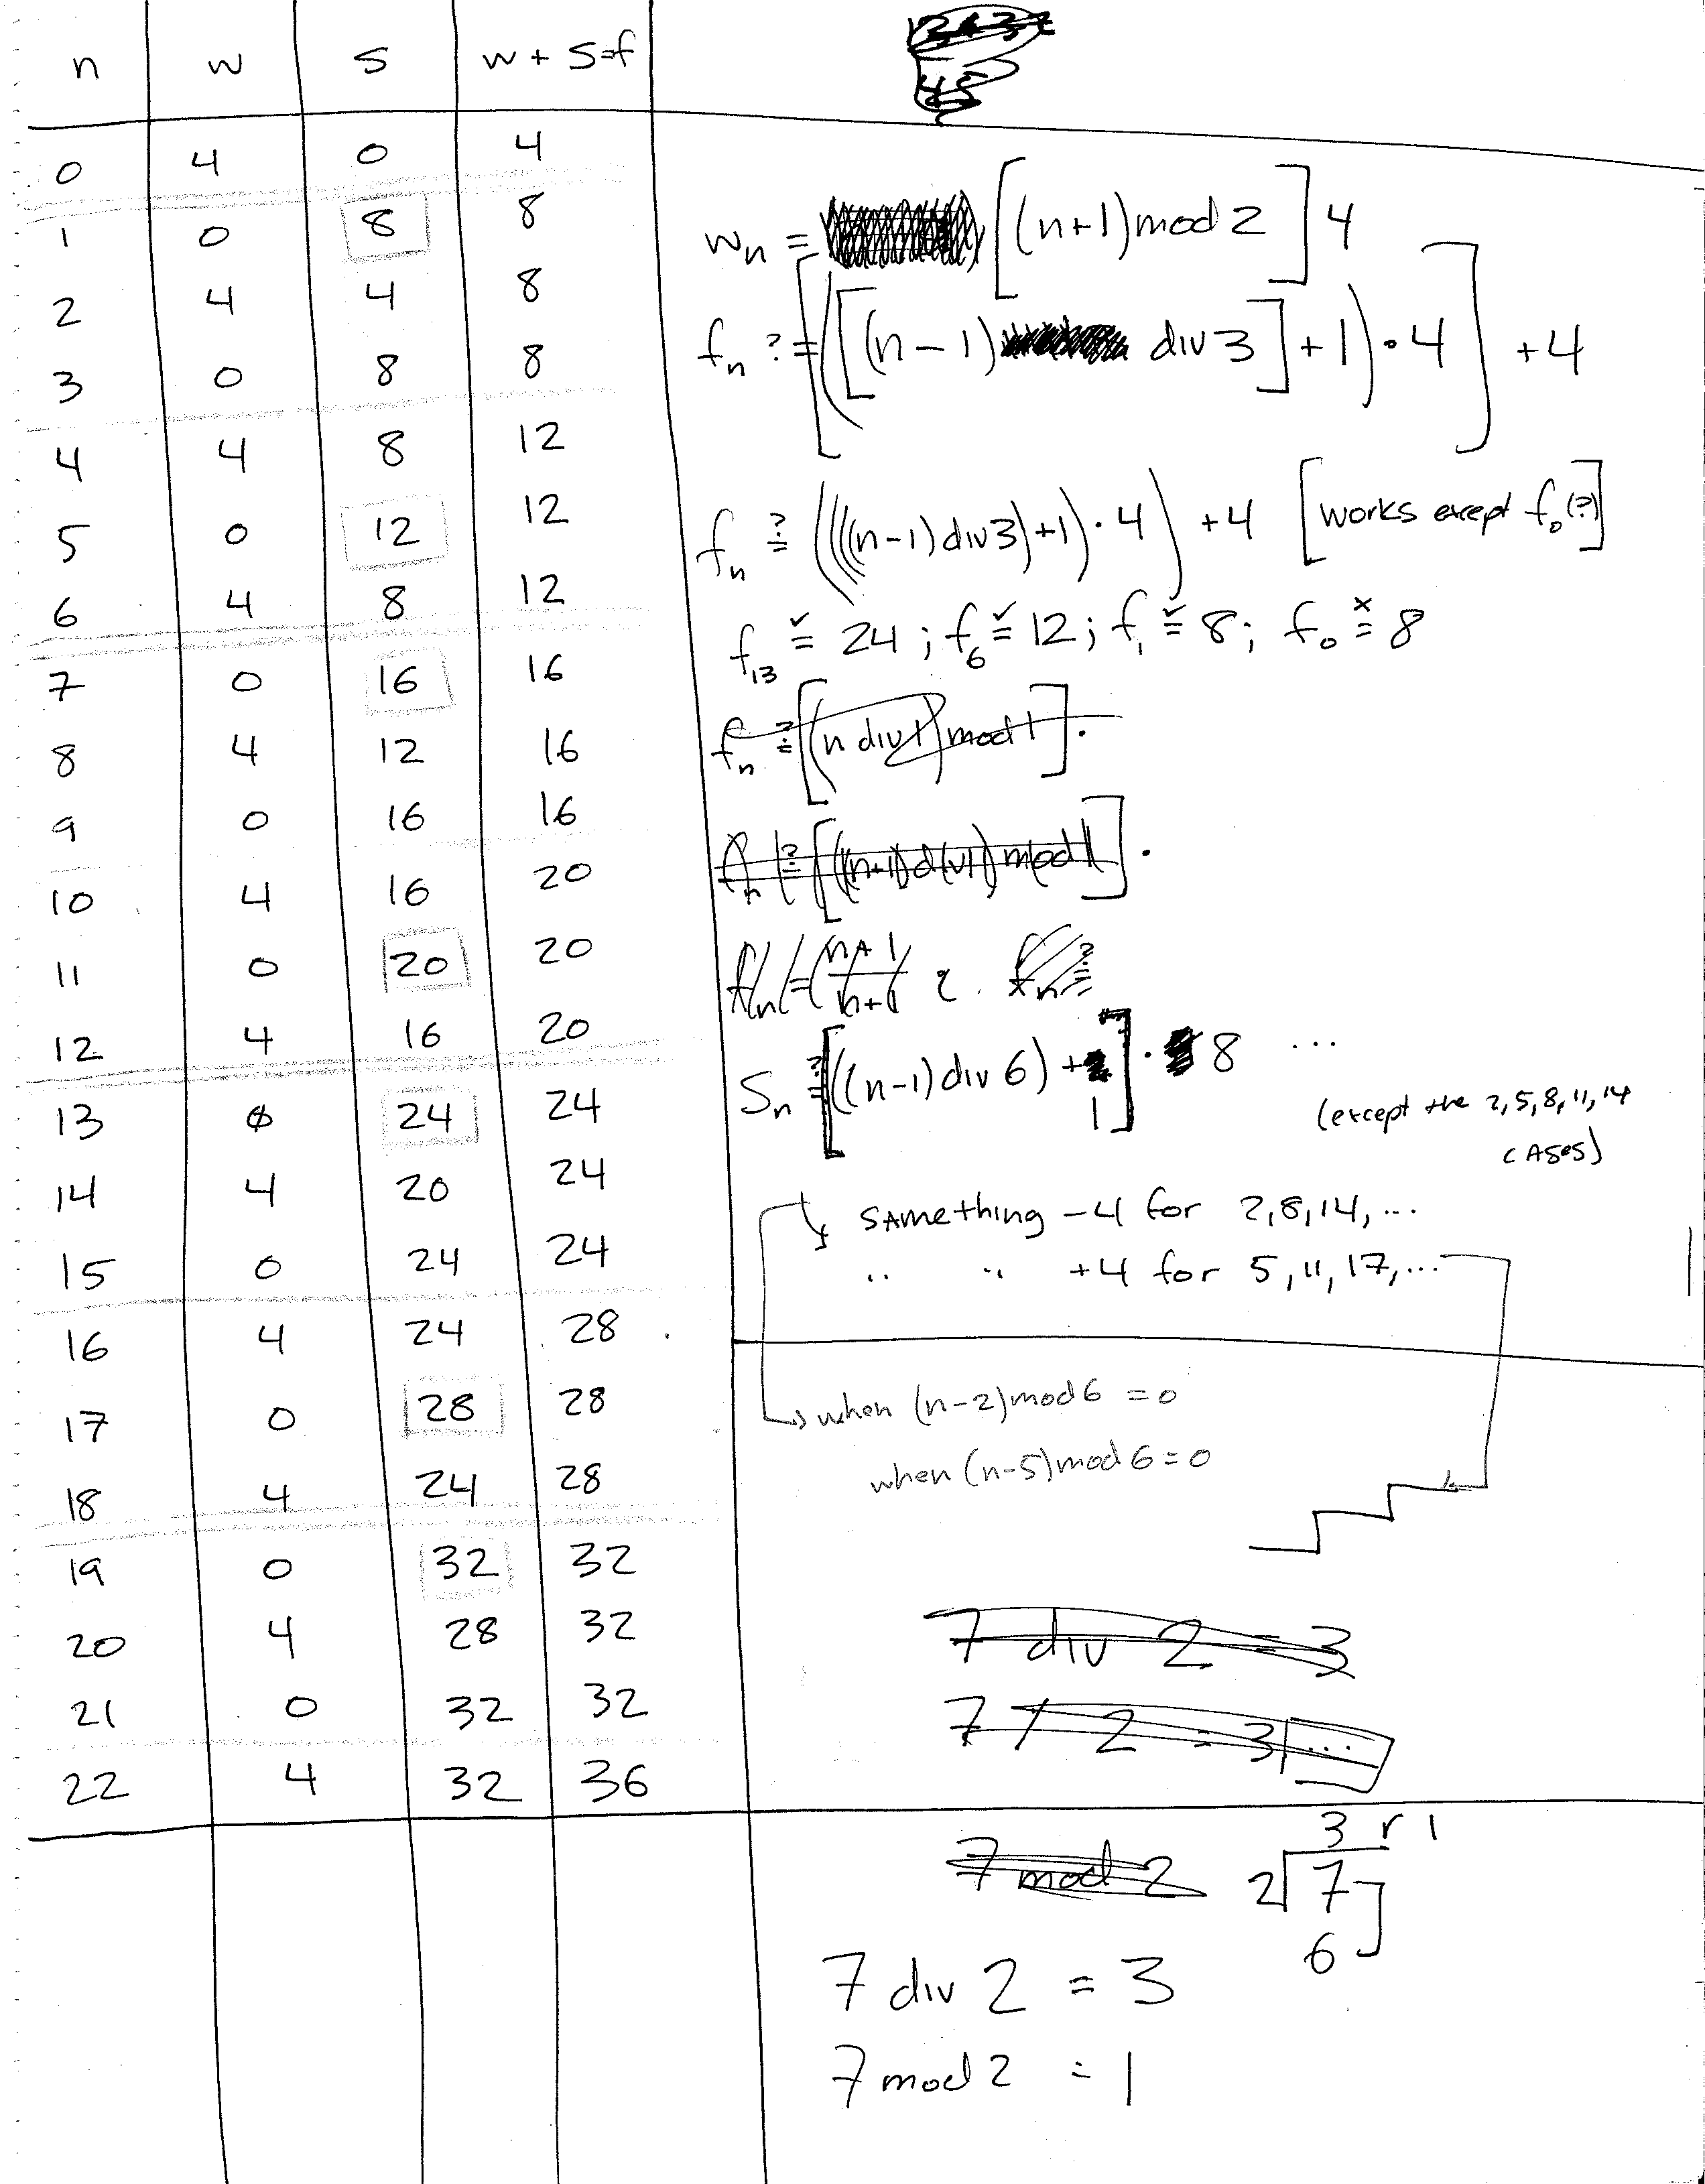 n w s w + s=f
0 4 0 4
1 0 8 8
2 4 4 8
3 0 8 8
4 4 8 12
5 0 12 12
6 4 8 12
7 0 16 16
8 4 12 16
9 0 16 16
10 4 16 20
11 0 20 20
12 4 16 20
13 0 24 24
14 4 20 24
15 0 24 24
16 4 24 28
17 0 28 28
18 4 24 28
19 0 32 32
20 4 28 32
21 0 32 32
22 4 32 36
wn = [(n+1) mod 2] 4
fn ?= [([(n-1) div 3] + 1) · 4] + 4
fn ≟ ((((n-1) div 3) + 1) · 4) + 4 [works except f0 (?)]
f13 = ✓ 24 ; f6 = ✓ 12 ; f1 = ✓ 8; f0 = × 8
fn ≟ [(n div 1) mod 1] ·
fn ≟ [((n+1) div 1) mod 1] ·
Sn ≟ [((n-1) div 6) + 1] · 8 ...
(except the 2,5,8,11,14
cases)
↳ something -4 for 2,8,14,...
" " +4 for 5,11,17,...
↳ when (n-2) mod 6 = 0
when (n-5) mod 6 = 0
7 div 2 = 3
7 / 2 = 3 ...
7 mod 2
3 r 1
2 7
6
7 div 2 = 3
7 mod 2 = 1